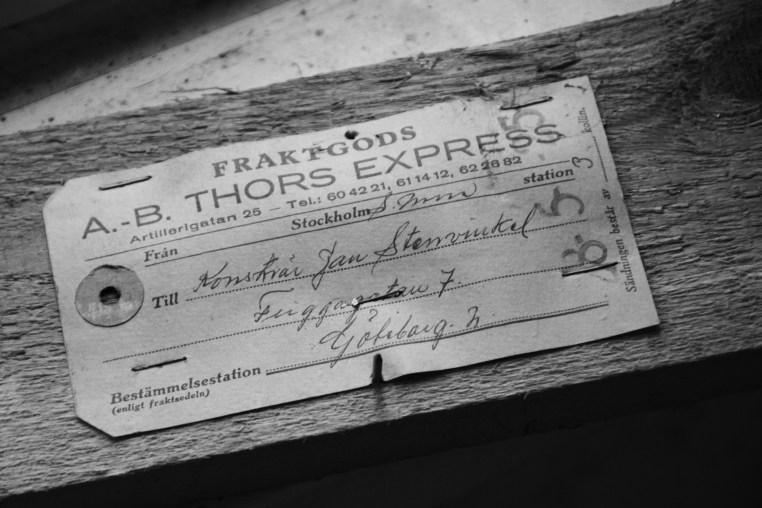 FRAKTGODS
A.-B. THORS EXPRESS
Artillerigatan 25 — Tel.: 60 42 21, 61 14 12, 62 26 82
Från Stockholm station
Till Konstnär Jan Stenvinkel
Friggagatan 7
Göteborg. N.
Bestämmelsestation
(enligt fraktsedeln)
Sändningen består av 3 kollin.